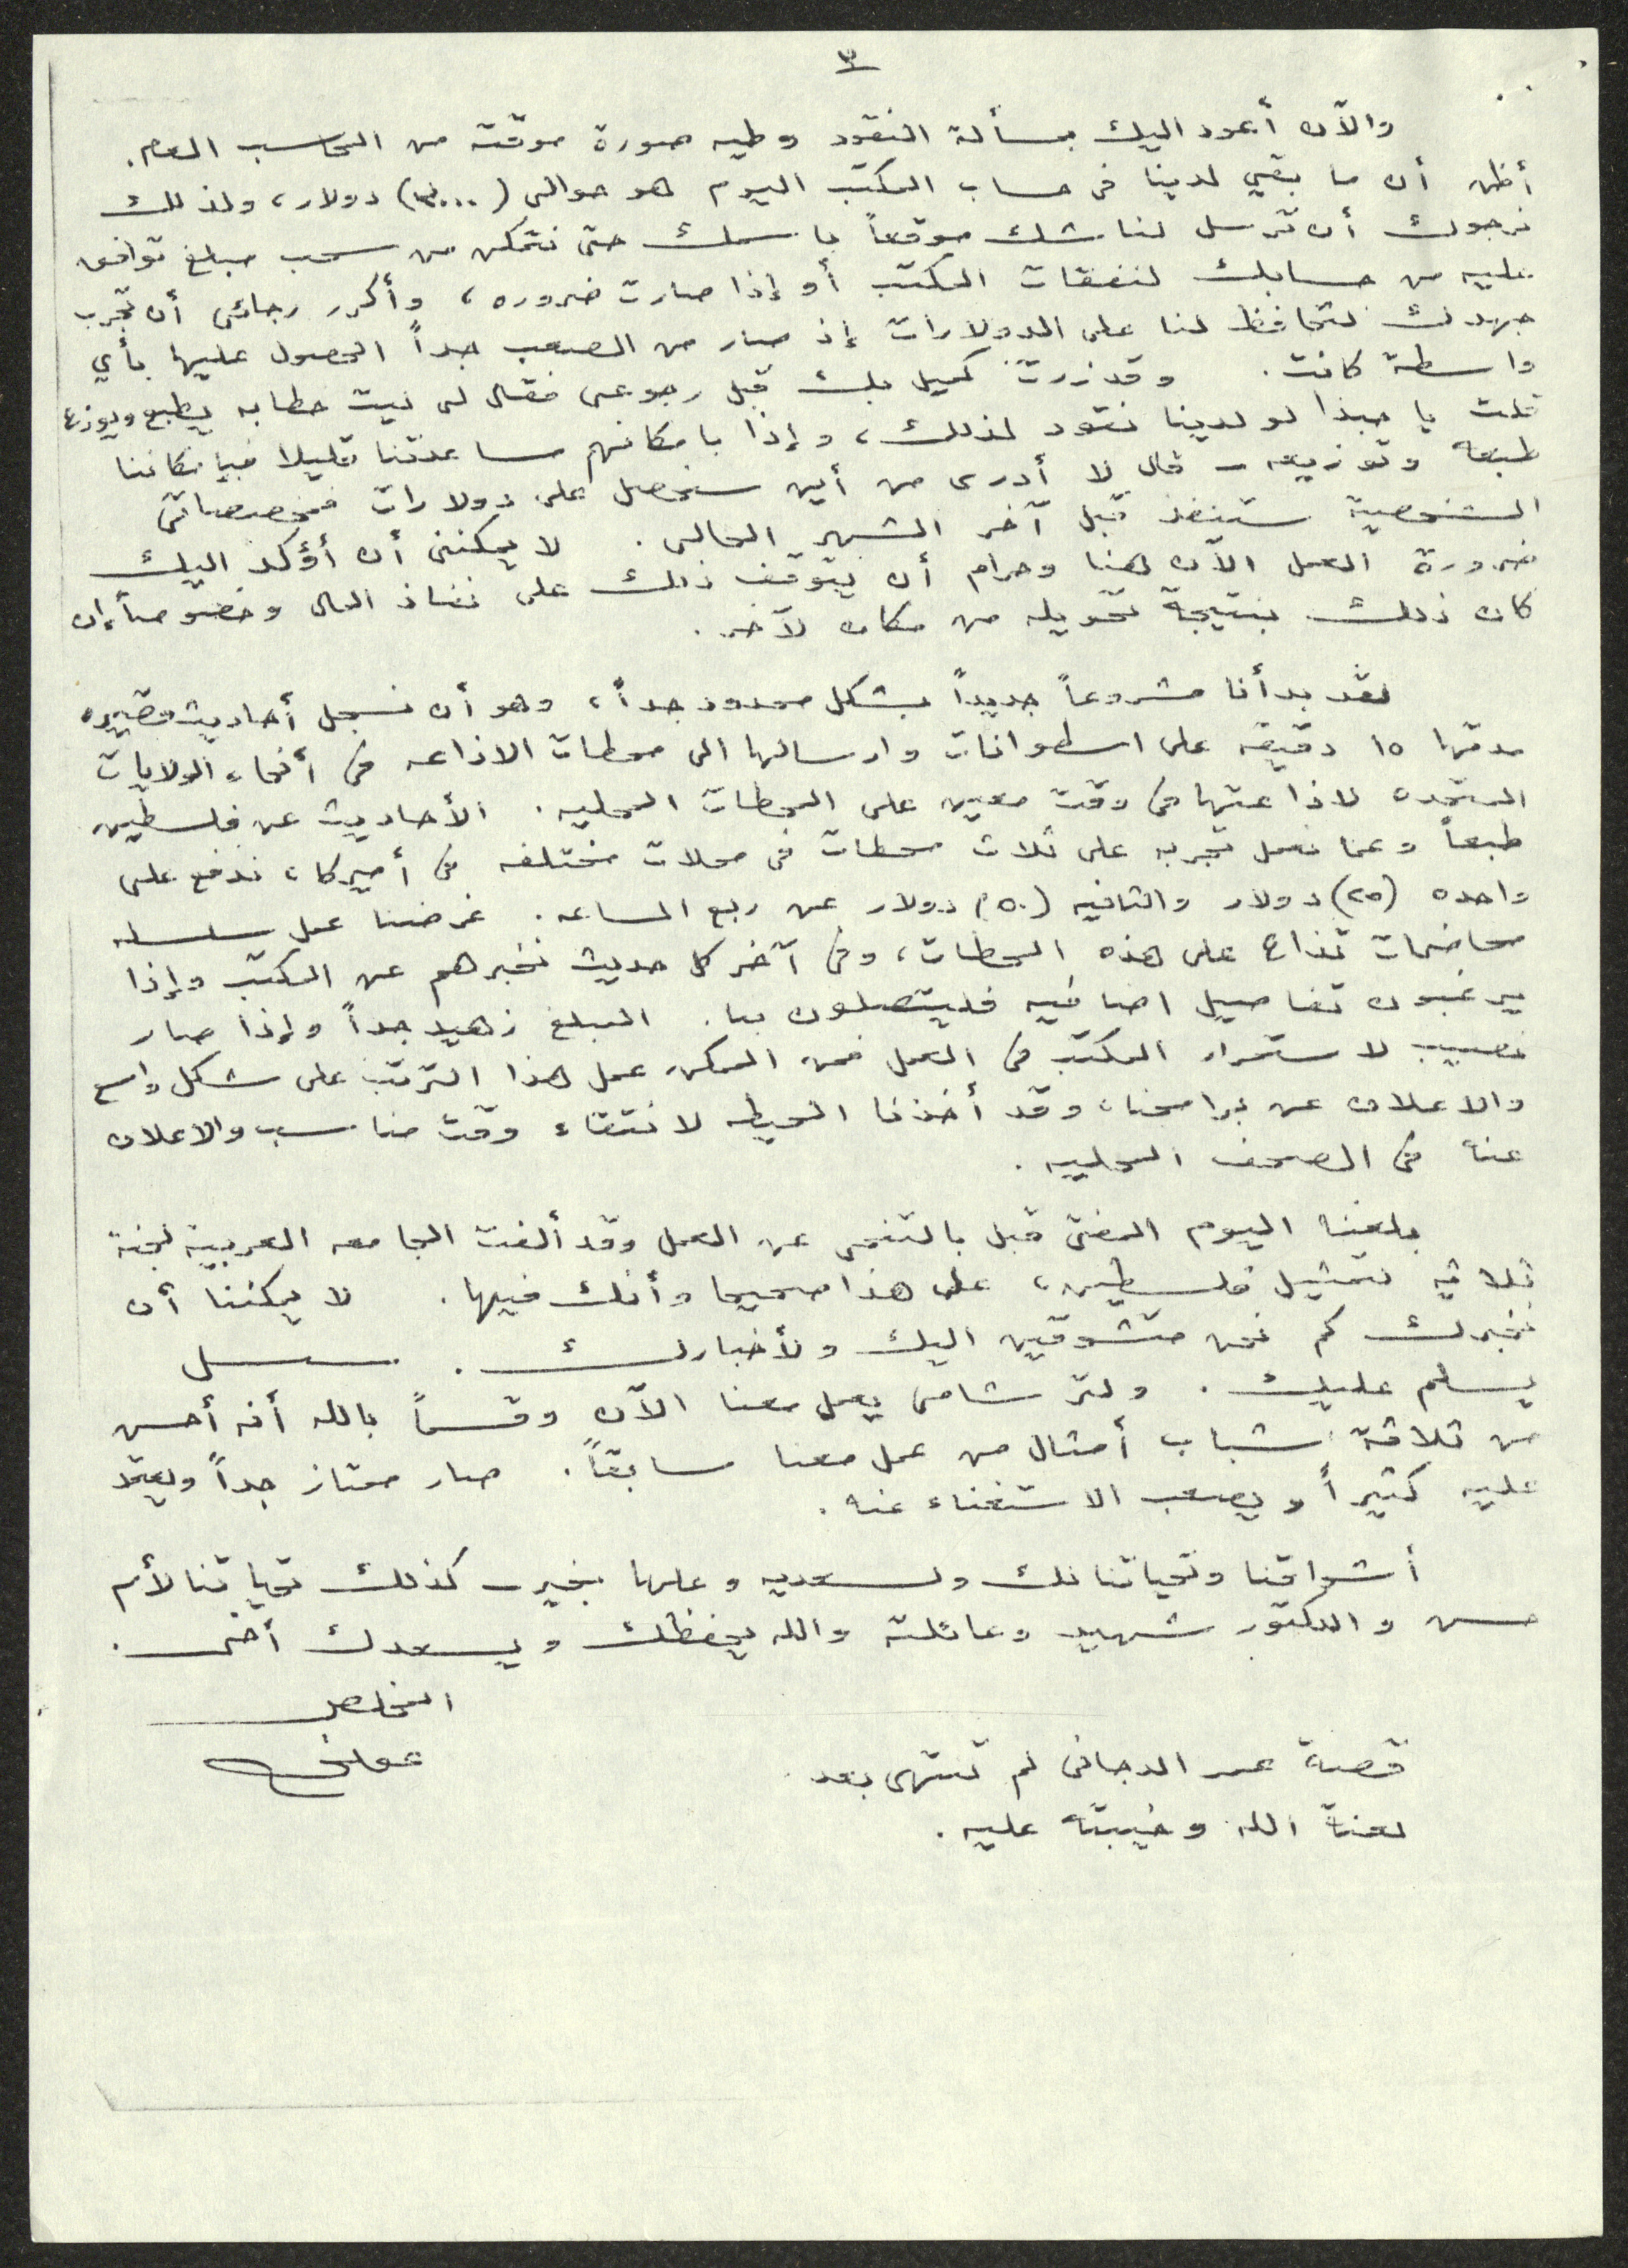 ٣
والآن أعود اليك بمسألة النقود وطيه صورة موقتة من المحاسب العام.
أظن أن ما بقي لدينا في حساب المكتب اليوم هو حوالي (٣٠٠٠) دولار، ولذلك
نرجوك أن ترسل لنا شك موقعاً باسمك حتى نتمكن من سحب مبلغ توافق
عليه من حسابك لنفقات المكتب أو إذا صارت ضروره، وأكرر رجائي أن تجرب
جهدك لتحافظ لنا على الدولارات إذ صار من الصعب جداً الحصول عليها بأي
واسطة كانت. وقد زرت كميل بك قبل رجوعي فقال لي نيت خطابه يطبع ويوزع
قلت يا حبذا لو لدينا نقود لذلك، وإذا بامكانهم مساعدتنا قليلا فبإمكاننا
طبعه وتوزيعه - قال لا أدري من أين سنحصل على دولارات فمخصصاتي
الشخصية ستنفذ قبل آخر الشهر الحالي. لا يمكنني أن أؤكد اليك
ضرورة العمل الآن هنا وحرام أن يتوقف ذلك على نفاذ المال وخصوصاً إن
كان ذلك بنتيجة تحويله من مكان لآخر.
لقد بدأنا مشروعاً جديداً بشكل محدود جداً، وهو أن نسجل أحاديث قصيره
مدتها ١٥ دقيقه على اسطوانات وارسالها الى محطات الاذاعه في أنحاء الولايات
المتحده لاذاعتها في وقت معين على المحطات المحليه. الأحاديث عن فلسطين
طبعاً وعما نعمل تجربه على ثلاث محطات في محلات مختلفه في أميركا، ندفع على
واحده (٢٥) دولار والثانيه (٥٠) دولار عن ربع الساعه. غرضنا عمل سلسله
محاضرات تذاع على هذه المحطات، وفي آخر كل حديث نخبرهم عن المكتب وإذا
يرغبون تفاصيل اضافيه فليتصلون بنا. المبلغ زهيد جداً وإذا صار
نصيب لاستمرار المكتب في العمل فمن الممكن عمل هذا الترتب على شكل واسع
والاعلان عن برامجنا، وقد أخذنا الحيطه لانتقاء وقت مناسب والاعلان
عنه في الصحف المحليه.
بلغنا اليوم المفتي قبل بالتنحي عن العمل وقد ألفت الجامعه العربية لجنة
ثلاثيه لتمثيل فلسطين، على هذا صحيحا وأنك فيها. لا يمكننا أن
نخبرك كم نحن متشوقين اليك ولأخبارك. سسل
يسلم عليك. ولتر شامي يعمل معنا الآن وقسماً بالله أنه أحسن
من ثلاثة شباب أمثال من عمل معنا سابقاً. صار ممتاز جداً ويعتمد
عليه كثيراً ويصعب الاستغناء عنه.
أشواقنا وتحياتنا لك ولسعديه وعلها بخير - كذلك تحياتنا لأم
حسن والدكتور شهيد وعائلته والله يحفظك ويسعدك أخي.
المخلص
عوني
قصة عمر الدجاني لم تنتهي بعد
لعنة الله وخيبته عليه.